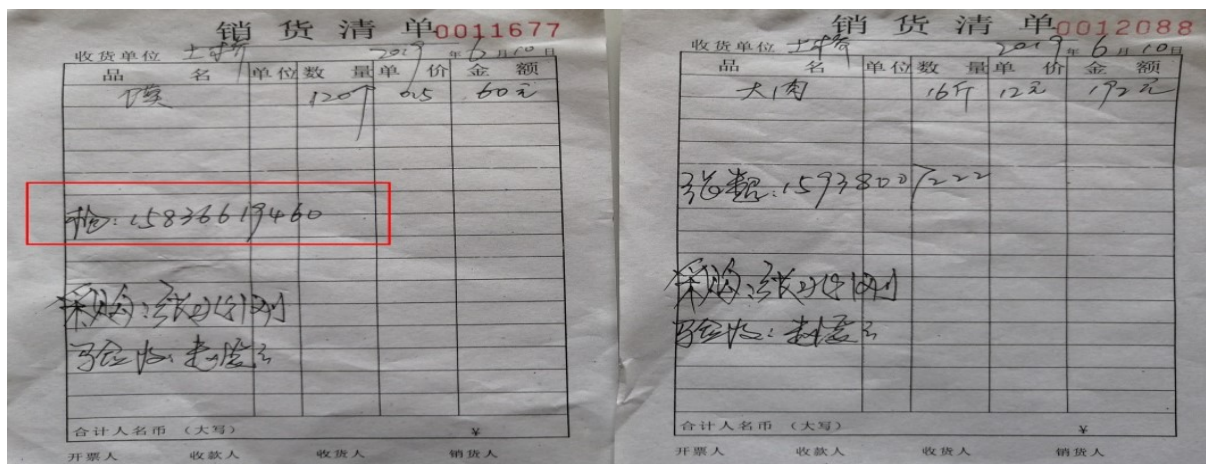 销货清单 0011677
收货单位 土桥 2019年6月10日
品名 单位 数量 单价 金额
馍 120个 0.5 60元
:15836619460
采购:张红刚
验收:
合计人名币 (大写) ¥
开票人 收款人 收货人 销货人
销货清单 0012088
收货单位 土桥 2019年6月10日
品名 单位 数量 单价 金额
大肉 16斤 12元 192元
张:15938007222
采购:张红刚
验收:
合计人名币 (大写) ¥
开票人 收款人 收货人 销货人